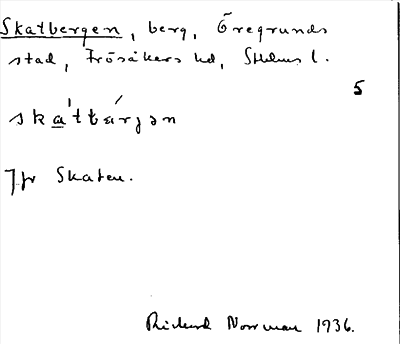 Skatbergen, berg, Öregrunds
stad, Frösåkers hd, Sthlms l.
5
ska̲'tbárjən
Jfr Skaten.
Rickard Norrman 1936.